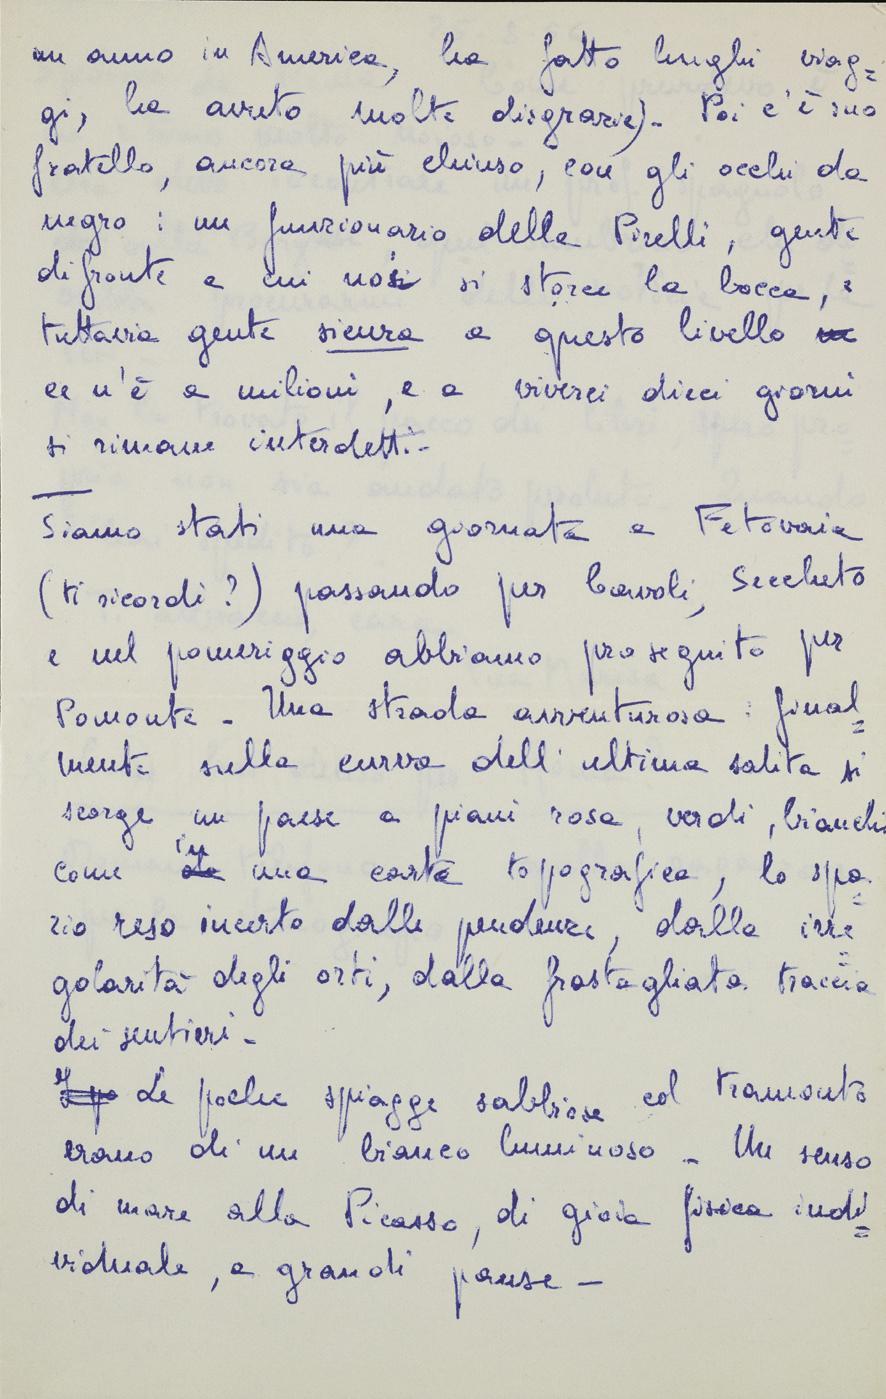 un anno in America, ha fatto lunghi viag=
gi, ha avuto molte disgrazie)_ Poi c'è suo
fratello, ancora più chiuso, con gli occhi da
negro : un funzionario della Pirelli, gente
di fronte a cui noi si storce la bocca, e
tuttavia gente sicura a questo livello
ce n'è a milioni, e a viverci dieci giorni
si rimane interdetti.-
Siamo stati una giornata a Fetovaia
(ti ricordi?) passando per Cavoli, Seccheto
e nel pomeriggio abbiamo proseguito per
Pomonte _ Una strada avventurosa : final=
mente sulla curva dell'ultima salita si
scorge un paese a piani rosa, verdi, bianchi
come in una carta topografica, lo spa=
zio reso incerto dalle pendenze, dalla irre=
golarità degli orti, dalla frastagliata traccia
dei sentieri _
Le poche spiagge sabbiose col tramonto
erano di un bianco luminoso _ Un senso
di mare alla Picasso, di gioia fisica indi=
viduale, a grandi pause _